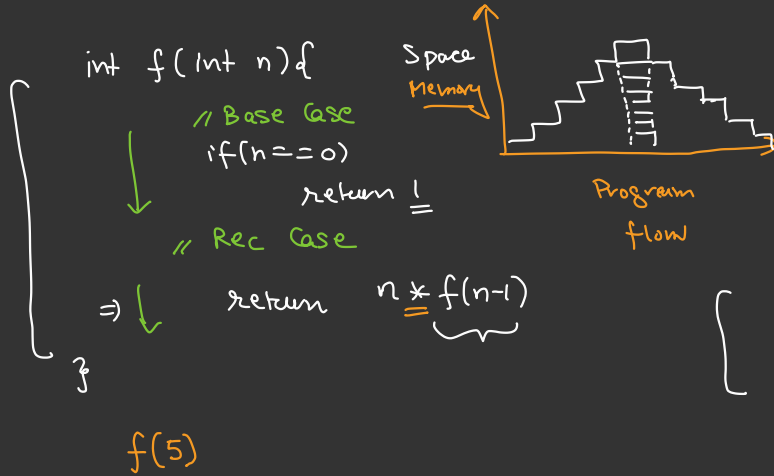 int f(int n){
// Base Case
if(n==0)
return 1
// Rec Case
⇒ return n * f(n-1)
}
f(5)
Space
Memory
Program
flow